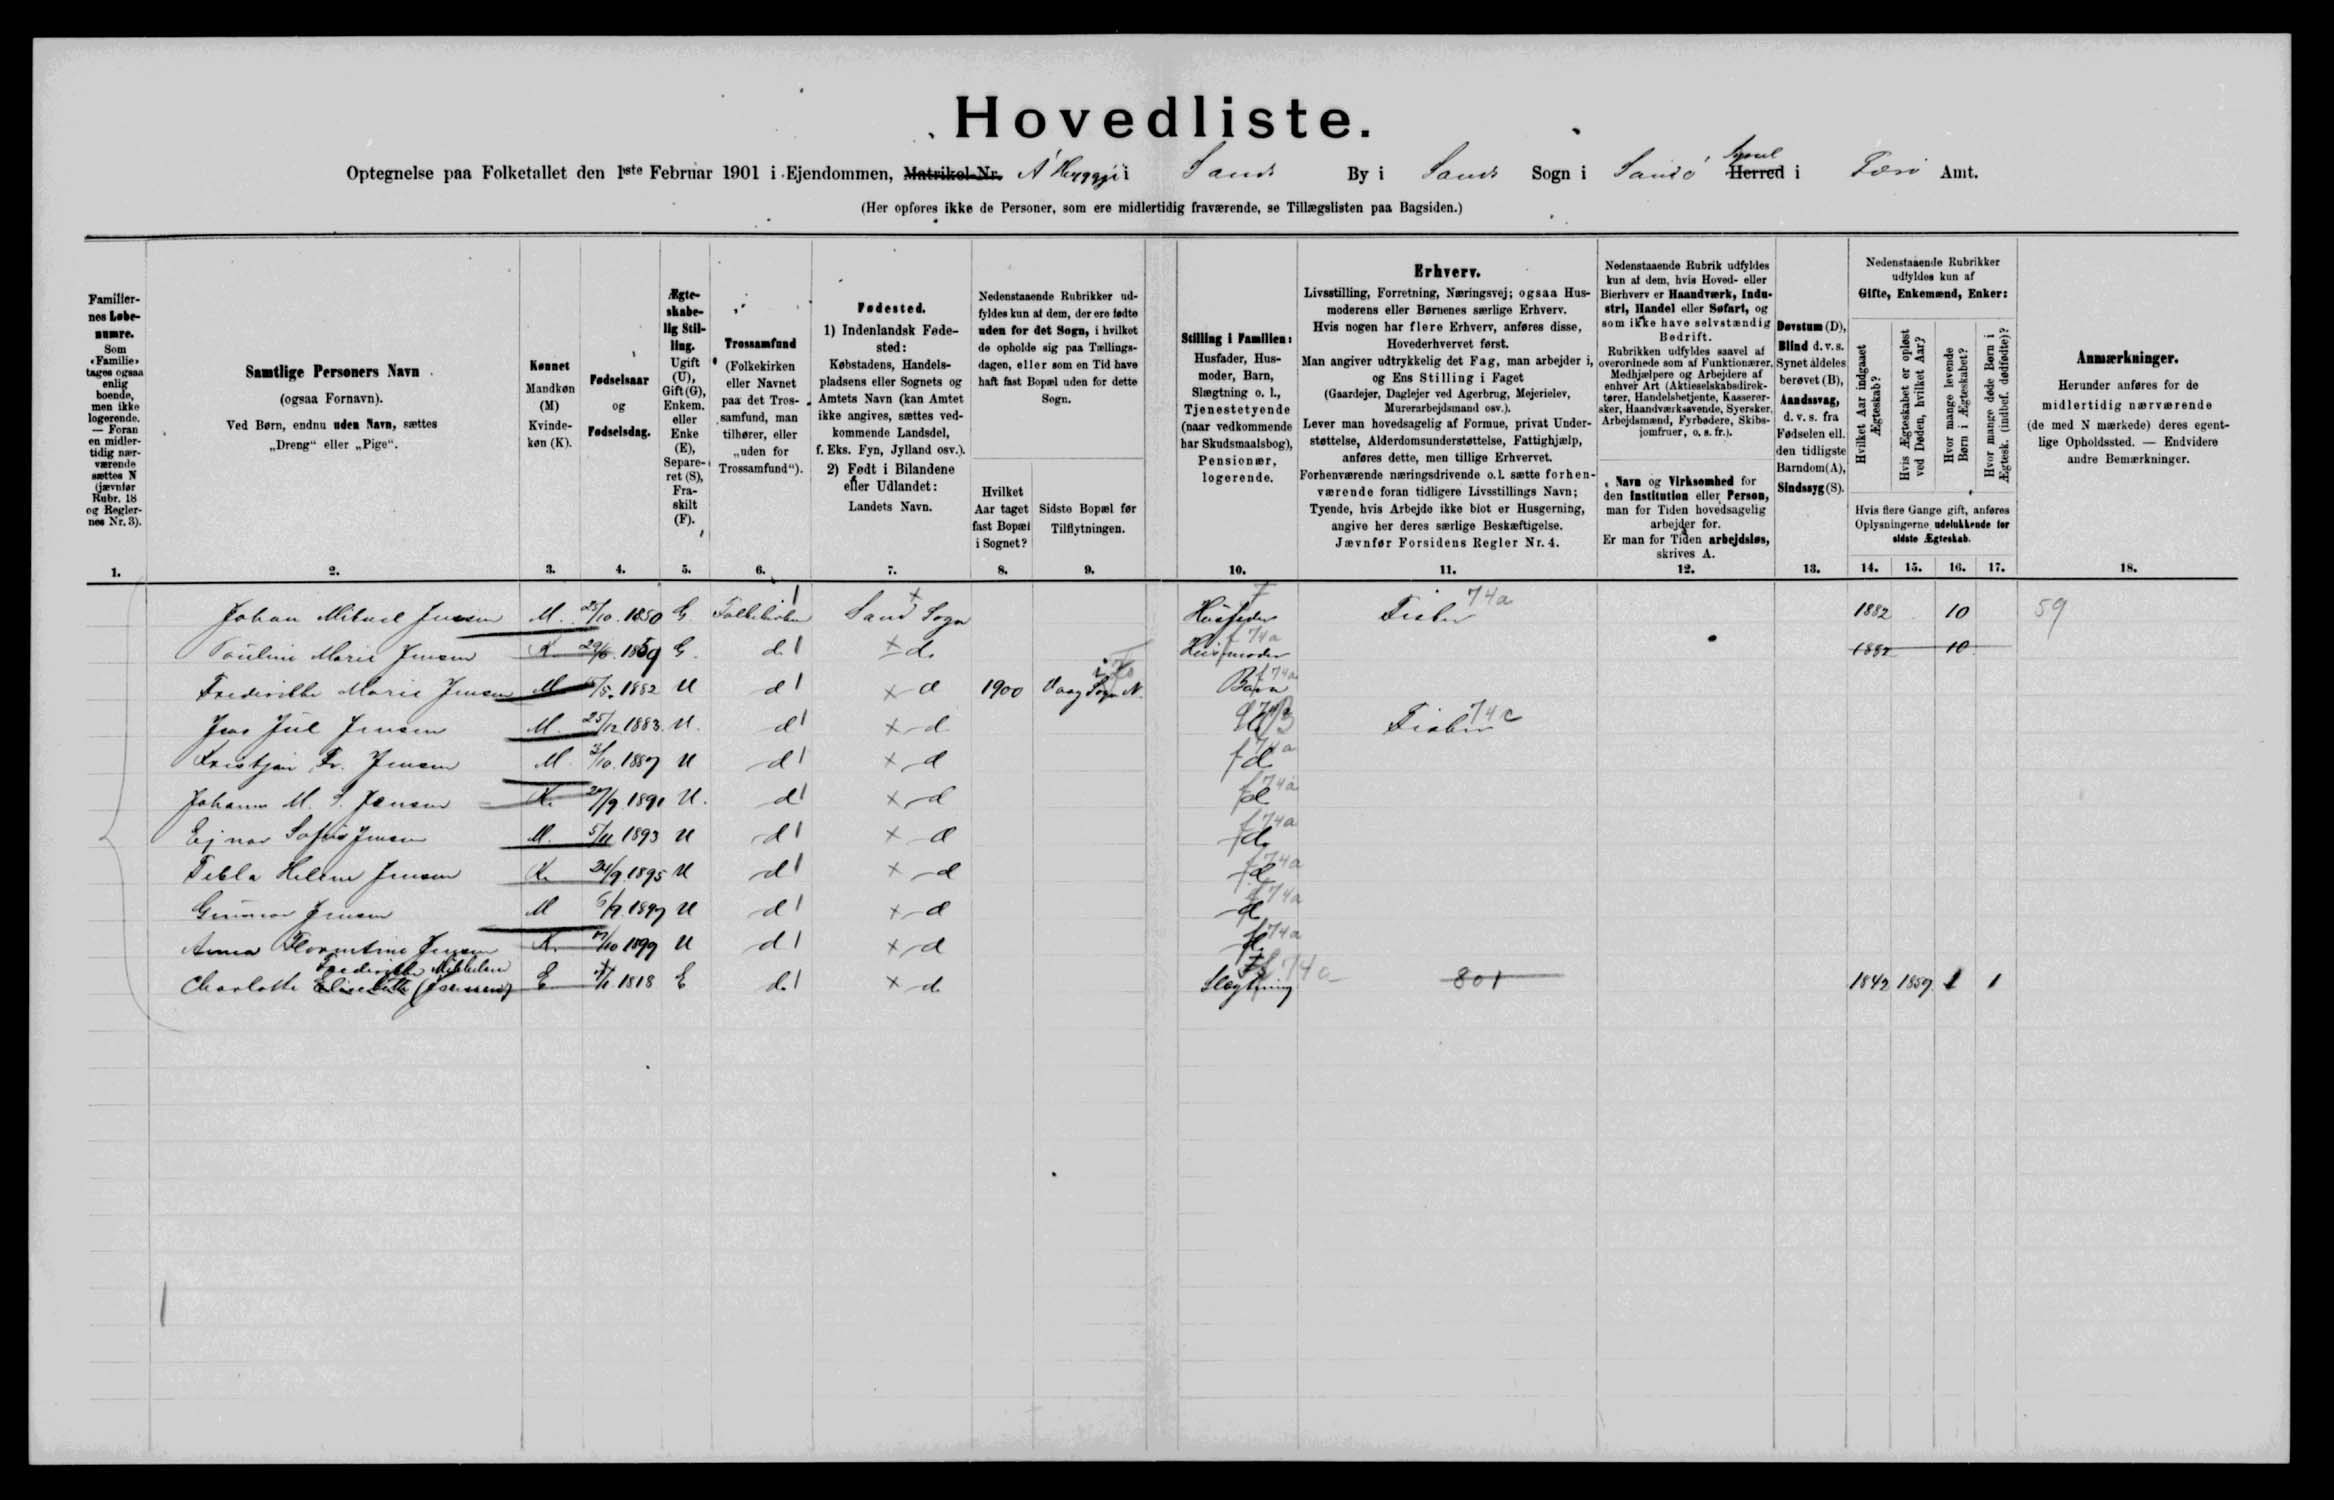 Hovedliste.
Optegnelse paa Folketallet den 1ste Februar 1901 i Ejendommen, Matrikel-Nr. Á Heyggji i Sands By i Sands Sogn i Sandö Herred Syssel i Færö Amt.
(Her opføres ikke de Personer, som ere midlertidig fraværende, se Tillægslisten paa Bagsiden.)
Familiernes Løbenumre.
Som «Familie» tages ogsaa enlig boende, men ikke logerende. — Foran en midlertidig nærværende sættes N (jævnfør Rubr. 18 og Reglernes Nr. 3).
1.
Samtlige Personers Navn
(ogsaa Fornavn).
Ved Børn, endnu uden Navn, sættes
„Dreng“ eller „Pige“.
2.
Kønnet
Mandkøn (M)
Kvindekøn (K).
3.
Fødselsaar
og
Fødselsdag.
4.
Ægteskabelig Stilling.
Ugift (U), Gift (G), Enkem. eller Enke (E), Separeret (S), Fraskilt (F).
5.
Trossamfund
(Folkekirken eller Navnet paa det Trossamfund, man tilhører, eller „uden for Trossamfund“).
6.
Fødested.
1) Indenlandsk Fødested:
Købstadens, Handelspladsens eller Sognets og Amtets Navn (kan Amtet ikke angives, sættes vedkommende Landsdel, f. Eks. Fyn, Jylland osv.).
2) Født i Bilandene eller Udlandet:
Landets Navn.
7.
Nedenstaaende Rubrikker udfyldes kun af dem, der ere fødte uden for det Sogn, i hvilket de opholde sig paa Tællingsdagen, eller som en Tid have haft fast Bopæl uden for dette Sogn.
Hvilket Aar taget fast Bopæl i Sognet?
8.
Sidste Bopæl før Tilflytningen.
9.
Stilling i Familien:
Husfader, Husmoder, Barn, Slægtning o. l., Tjenestetyende (naar vedkommende har Skudsmaalsbog), Pensionær, logerende.
10.
Erhverv.
Livsstilling, Forretning, Næringsvej; ogsaa Husmoderens eller Børnenes særlige Erhverv.
Hvis nogen har flere Erhverv, anføres disse, Hovederhvervet først.
Man angiver udtrykkelig det Fag, man arbejder i, og Ens Stilling i Faget
(Gaardejer, Daglejer ved Agerbrug, Mejerielev, Murerarbejdsmand osv.).
Lever man hovedsagelig af Formue, privat Understøttelse, Alderdomsunderstøttelse, Fattighjælp, anføres dette, men tillige Erhvervet.
Forhenværende næringsdrivende o. l. sætte forhenværende foran tidligere Livsstillings Navn;
Tyende, hvis Arbejde ikke blot er Husgerning, angive her deres særlige Beskæftigelse.
Jævnfør Forsidens Regler Nr. 4.
11.
Nedenstaaende Rubrik udfyldes kun af dem, hvis Hoved- eller Bierhverv er Haandværk, Industri, Handel eller Søfart, og som ikke have selvstændig Bedrift.
Rubrikken udfyldes saavel af overordnede som af Funktionærer, Medhjælpere og Arbejdere af enhver Art (Aktieselskabsdirektører, Handelsbetjente, Kasserersker, Haandværkssvende, Syersker, Arbejdsmænd, Fyrbødere, Skibsjomfruer, o. s. fr.).
Navn og Virksomhed for den Institution eller Person, man for Tiden hovedsagelig arbejder for.
Er man for Tiden arbejdsløs, skrives A.
12.
Døvstum (D), Blind d. v. s. Synet aldeles berøvet (B), Aandssvag, d. v. s. fra Fødselen ell. den tidligste Barndom (A), Sindssyg (S).
13.
Nedenstaaende Rubrikker udfyldes kun af
Gifte, Enkemænd, Enker:
Hvilket Aar indgaaet Ægteskab?
Hvis Ægteskabet er opløst ved Døden, hvilket Aar?
Hvor mange levende Børn i Ægteskabet?
Hvor mange døde Børn i Ægtesk. (indbef. dødfødte)?
Hvis flere Gange gift, anføres Oplysningerne udelukkende for sidste Ægteskab.
14. 15. 16. 17.
Anmærkninger.
Herunder anføres for de midlertidig nærværende (de med N mærkede) deres egentlige Opholdssted. — Endvidere andre Bemærkninger.
18.
Johan Mikael Jensen M. 25/10 1850 G. Folkekirken Sand Sogn Husfader Fisker 74a 1882 10 59
Pauline Marie Jensen K. 1859 G. d. d. Husmoder 74a 1882 10
Frederikke Marie Jensen M 1882 U d d 1900 Vaag Sogn N. Barn 74a
Jens Jul Jensen M. 25/12 1883. U. d d Fisker 74c
Kristjan Fr. Jensen M. 3/10. 1887 U d d d 74a
Johanne M. S. Jensen K. 1891 U. d d d 74a
Ejnar Sofus Jensen M. 5/11 1893 U d d d. 74a
Tekla Helene Jensen K. 24/9. 1895 U d d d 74a
Gunnar Jensen M 6/9. 1897 U d d d 74a
Anna Florentine Jensen K. 1899 U d d d 74a
Frederikke Mikkelsen
Charlotte Elisabeth (Joensen) E 1818 E d. d. Slægtning 74a 801 1842 1859. 1 1